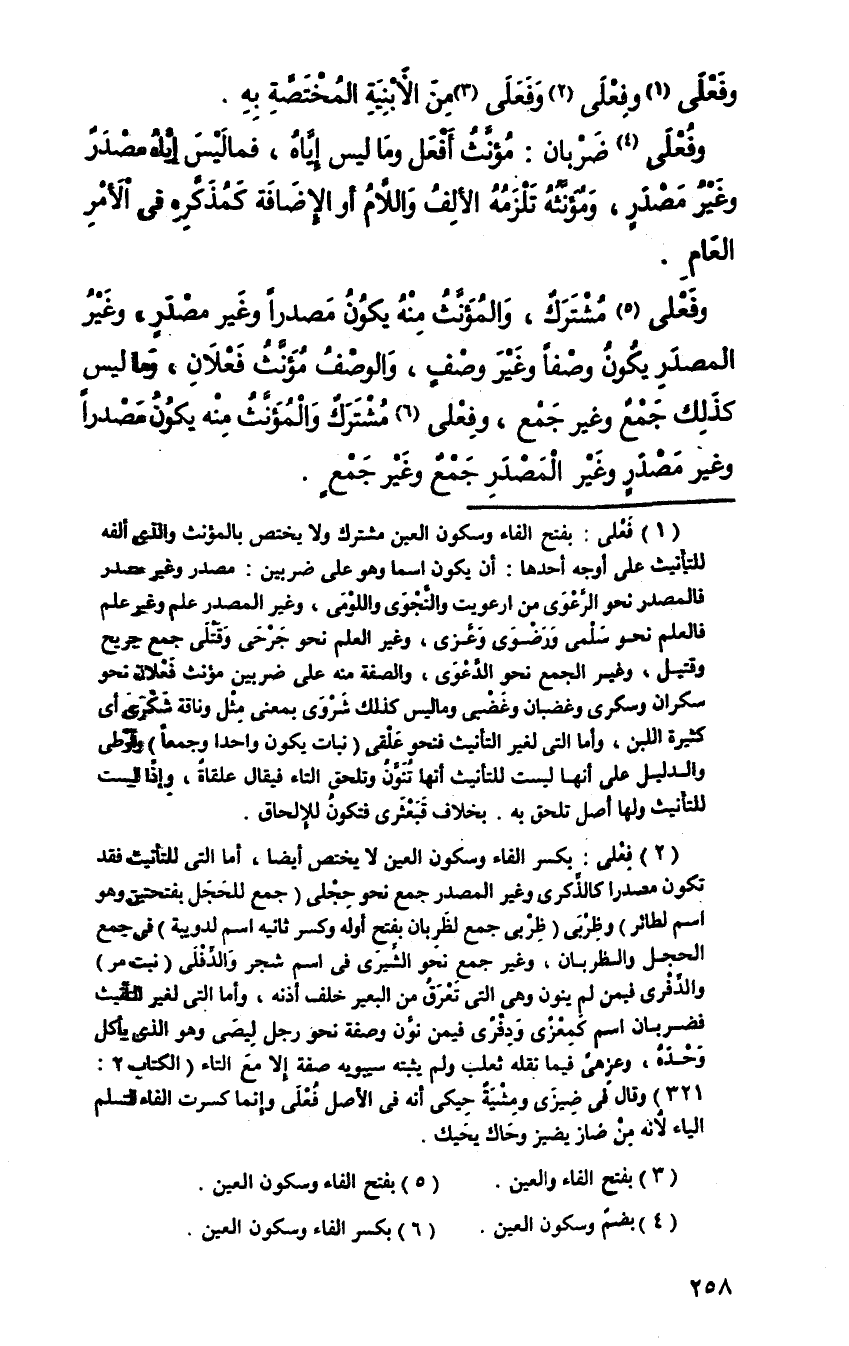 وفَعْلَى (١) وفِعْلَى (٢) وَفَعَلَى (٣) مِنَ الْأَبْنِيَةِ المُخْتَصَّةِ بِهِ .
وفُعْلَى (٤) ضَرْبان : مُؤنَّثُ أَفْعَل ومَا ليس إيَّاهُ ، فمالَيْسَ إيَّاهُ مصْدَرٌ
وغَيْرُ مَصْدَرٍ ، وَمُؤَنَّثُهُ تَلْزَمُهُ الألِفُ وَاللَّامُ أو الإضَافَة كَمُذَكَّرِه فى اْلَأمْرِ
العَام .
وفَعْلى (٥) مُشْتَرَكٌ ، وَالمُؤَنَّثُ مِنْهُ يكوُنُ مَصدراً وغَير مصْدَرٍ ، وغَيْرُ
المصدَرِ يكُونُ وصْفاً وغَيْرَ وصْفٍ ، وَالوصْفُ مُؤنَّثُ فَعْلَانِ ، وَما ليس
كذَلِك جَمْعٌ وغير جَمْع ، وفِعْلى (٦) مُشْتَرَكٌ وَالْمُؤَنَّثُ مِنْه يكوُنُ مَصْدراً
وغير مَصْدَرٍ وغَيْر الْمَصْدَرِ جَمْعٌ وغَيْر جَمْعٍ .
(١) فَعْلى : بفتح الفاء وسكون العين مشترك ولا يختص بالمؤنث والذي ألفه
للتأنيث على أوجه أحدها : أن يكون اسما وهو على ضربين : مصدر وغير مصدر
فالمصدر نحو الرَّعْوَى من ارعويت والنَّجْوَى واللوْمَى ، وغير المصدر علم وغير علم
فالعلم نحو سَلْمى وَرَضْوَى وَعَزى ، وغير العلم نحو جَرْحَى وَقَتْلَى جمع جريح
وقتيل ، وغير الجمع نحو الدَّعْوَى ، والصفة منه على ضربين مؤنث فَعْلان نحو
سكران وسكرى وغضبان وغَضْبى وماليس كذلك شَرْوَى بمعنى مِثْل وناقة شَكْرَى أى
كثيرة اللبن ، وأما التى لغير التأنيث فنحو عَلْقى ( نبات يكون واحدا وجمعاً )
والدليل على أنها ليست للتأنيث أنها تُنَوَّنُ وتلحق التاء فيقال علقاةً ، وإذًا ليست
للتأنيث ولها أصل تلحق به . بخلاف قَبَعْثَرى فتكونُ للإلحاق .
(٢) فِعْلى : بكسر الفاء وسكون العين لا يختص أيضا ، أما التى للتأنيث فقد
تكون مصدرا كالذِّكرى وغير المصدر جمع نحو حِجْلى ( جمع للحَجَل بفتحتين وهو
اسم لطائر ) وظِرْبَى ( ظِرْبى جمع لظَرِبان بفتح أوله وكسر ثانيه اسم لدويبة ) فى جمع
الحجل والظربان ، وغير جمع نحو الشِّيزَى فى اسم شجر وَالدِّفْلَى ( نبت مر )
والذِّفْرى فيمن لم ينون وهى التى تَعْرَقُ من البعير خلف أذنه ، وأما التى لغير التأنيث
فضربان اسم كَمِعْزًى وَذِفْرًى فيمن نوَّن وصفة نحو رجل كِيصًى وهو الذى يأكل
وَحْدَهُ ، وعزهىً فيما نقله ثعلب ولم يثبته سيبويه صفة إلا معَ التاء ( الكتاب ٢ :
٣٢١ ) وقال فِى ضِيزَى ومِشْيَةٌ حِيكى أنه فى الأصل فُعْلَى وإنما كسرت الفاء لتسلم
الياء لأنه مِنْ ضاز يضيز وحَاك يحَيك .
(٣) بفتح الفاء والعين . (٥) بفتح الفاء وسكون العين .
(٤) بضمّ وسكون العين . (٦) بكسر الفاء وسكون العين .
٢٥٨